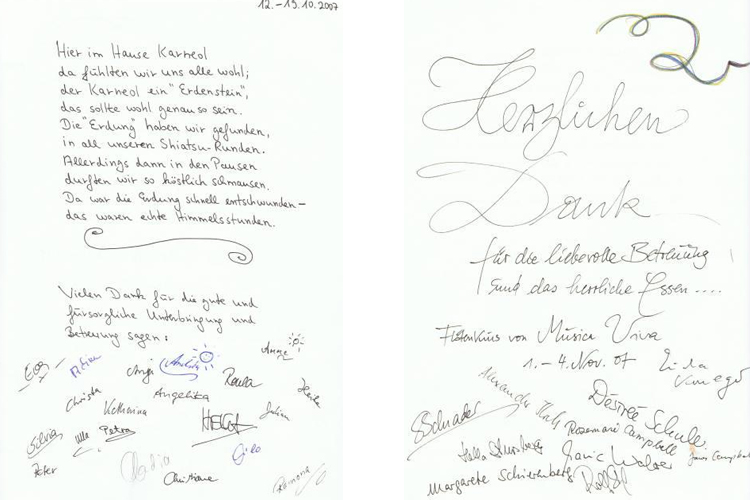 12.-19.10.2007
Hier im Hause Karneol
da fühlten wir uns alle wohl;
der Karneol ein "Erdenstein",
das sollte wohl genau so sein.
Die "Erdung" haben wir gefunden,
in all unseren Shiatsu-Runden.
Allerdings dann in den Pausen
durften wir so köstlich schmausen.
Da war die Erdung schnell entschwunden –
das waren echte Himmelsstunden.
Vielen Dank für die gute und
fürsorgliche Unterbringung und
Betreuung sagen:
Anja
Paula
Christa
Angelika
Katharina
Julian
Silvia
Ulla Petra
HELGA
Gilo
Peter
Nadja
Christiane
Ramona
Herzlichen
Dank
für die liebevolle Betreuung
und das herrliche Essen ....
Flötenkurs von Musica Viva
1.-4. Nov. 07
Désirée Schule
Alexander
Rosemarie Campbell
Margarete Schierenberg